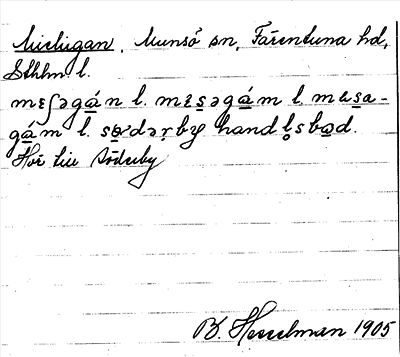 Michigan, Munsö sn, Färentuna hd,
Sthlm l.
mɛʃəgá̱n l. mɛs̱əgá̱m l. mɩs̱a-
gá̱m l. sø̱dəṛby hand l̥sbo̱d.
Hör till Söderby
B. Hesselman 1905